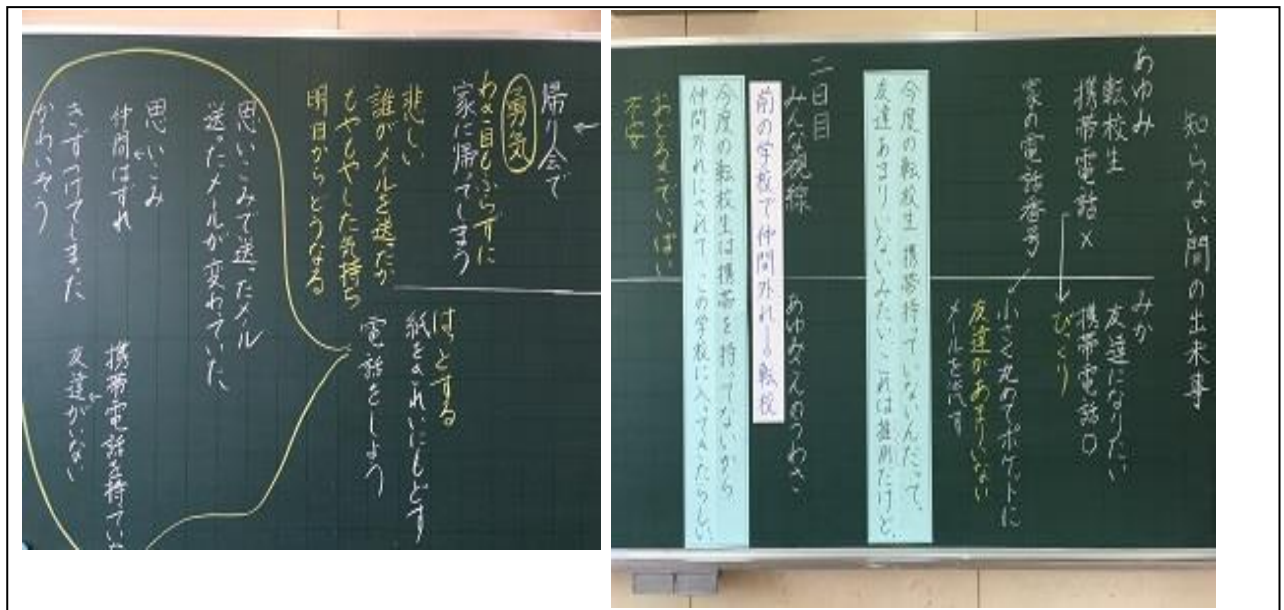 知らない間の出来事
あゆみ
転校生
携帯電話×
家の電話番号
みか
友達になりたい
携帯電話〇
びっくり
小さく丸めてポケットに
友達があまりいない
メールを流す
今度の転校生、携帯持っていないんだって。
友達あまりいないみたい。これは推測だけど。
二日目
みんな視線
あゆみさんのうわさ
前の学校で仲間外れ→転校
今度の転校生は携帯を持ってないから
仲間外れにされて、この学校に入ってきたらしい。
おどろきでいっぱい
不安
帰り会で
勇気
わき目もふらずに
家に帰ってしまう
悲しい
誰がメールを送ったか
もやもやした気持ち
明日からどうなる
はっとする
紙をきれいにもどす
電話をしよう
思いこみで送ったメール
送ったメールが変わっていた
思いこみ
仲間はずれ
きずつけてしまった
かわいそう
携帯電話を持ってい
友達がいない